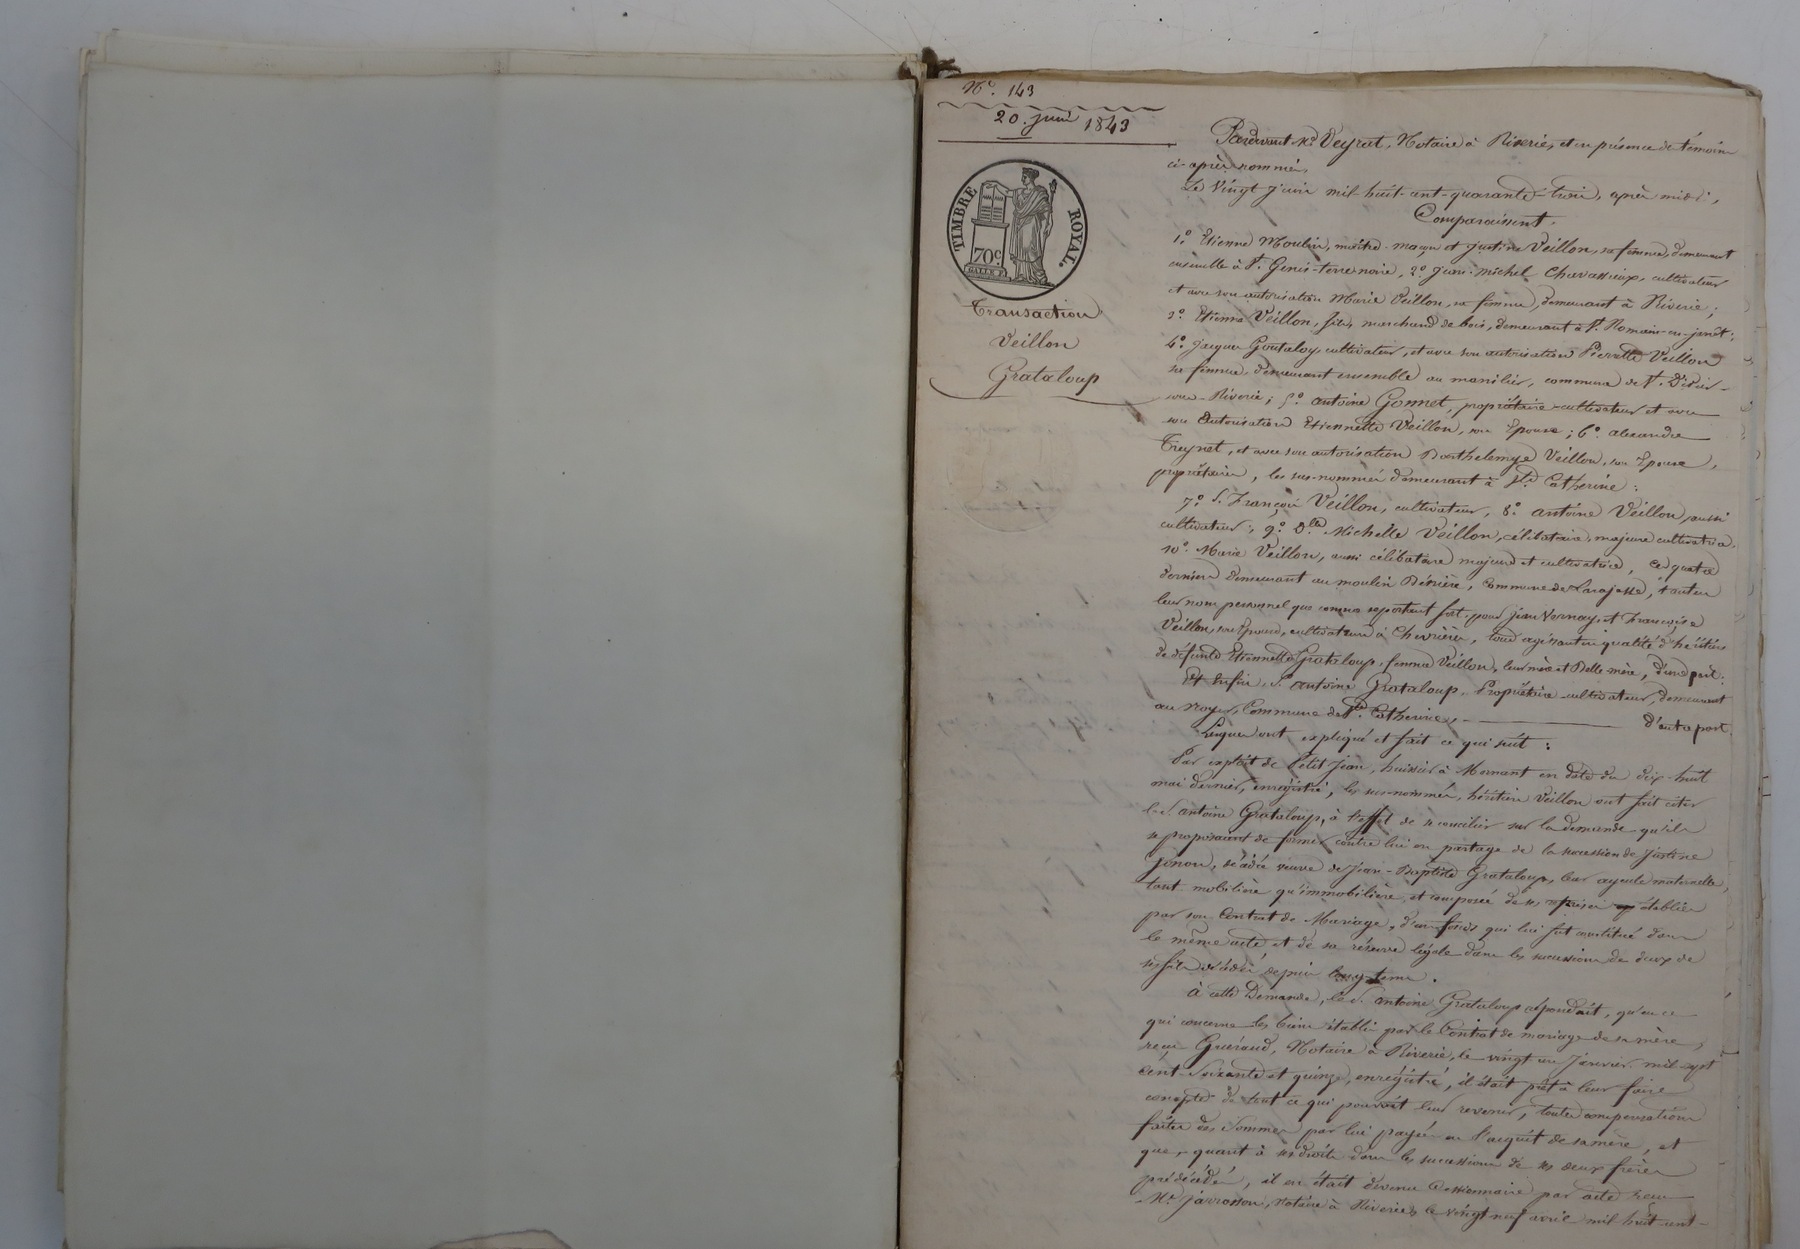 N.° 143
20. juin 1843
TIMBRE ROYAL.
70c
Transaction
Veillon
Grataloup
Pardevant Me Veyrat, Notaire à Riverie, et en présence de témoins
ci-après nommés,
Le vingt juin mil huit-cent-quarante-trois, après midi;
Comparaissent.
1.° Etienne Moulin, maître-maçon et Justine Veillon, sa femme, demeurant
ensemble à St. Genis-terrenoire, 2.° Jean-Michel Chavassieux, cultivateur
et avec son autorisation Marie Veillon, sa femme, demeurant à Riverie;
3.° Etienne Veillon, fils, marchand de bois, demeurant à St. Romain-en-jarêt;
4.° Jacques Goutaloy, cultivateur, et avec son autorisation Pierrette Veillon
sa femme, demeurant ensemble au manilier, commune de St. Didier-
sous-Riverie; 5.° antoine Gonnet, propriétaire-cultivateur et avec
son autorisation Etiennette Veillon, son Epouse; 6.° alexandre
Treynet, et avec son autorisation Barthelemye Veillon, son Epouse,
propriétaires, les sus-nommés demeurant à Ste. Catherine:
7.° S. François Veillon, cultivateur, 8.° antoine Veillon, aussi
cultivateur; 9.° Dlle Michelle Veillon, célibataire, majeure cultivatrice,
10.° Marie Veillon, aussi célibataire majeure et cultivatrice, ces quatre
derniers demeurant au moulin commune de Larajasse, tant en
leur nom personnel que comme se portant fort, pour Jean Vernay, et Françoise
Veillon, son Epouse, cultivateurs à Chevrières, tous agissant en qualité d'héritiers
de défunte Etiennette Grataloup, femme Veillon, leur mère et Belle-mère, d'une part;
Et Enfin, S. antoine Grataloup, Propriétaire-cultivateur, demeurant
au Noyer, Commune de Ste. Catherine, d'autre part.
Lesquels ont expliqué et fait ce qui suit:
Par exploit de Petit Jean, huissier à Mornant en date du dix-huit
mai dernier, enregistré, les sus-nommés, héritiers Veillon ont fait citer
le S. antoine Grataloup, à l'effet de se concilier sur la demande qu'ils
se proposaient de former contre lui en partage de la succession de Justine
Jinon, décédée veuve de Jean-Baptiste Grataloup, leur ayeule maternelle,
tant mobilière qu'immobilière, et composée de ses reprises établies
par son Contrat de Mariage, d'un fonds qui lui fut constitué dans
le même acte et de sa réserve légale dans les successions de deux de
ses fils décédés depuis long-tems.
à cette Demande, le S. antoine Grataloup répondait, qu'en ce
qui concerne les biens établis par le Contrat de mariage de sa mère,
reçu Guéraud, Notaire à Riverie, le vingt un Janvier mil-sept
cent-soixante et quinze, enregistré, il était prêt à leur faire
compte de tout ce qui pouvait leur revenir, toutes compensations
faites des sommes par lui payées en l'acquit de sa mère, et
que, quant à ses droits dans les successions de ses deux frères
prédécédés, il en était devenu Cessionnaire par acte reçu
Me. Jarrosson, Notaire à Riverie, le vingt neuf avril mil huit-cent-